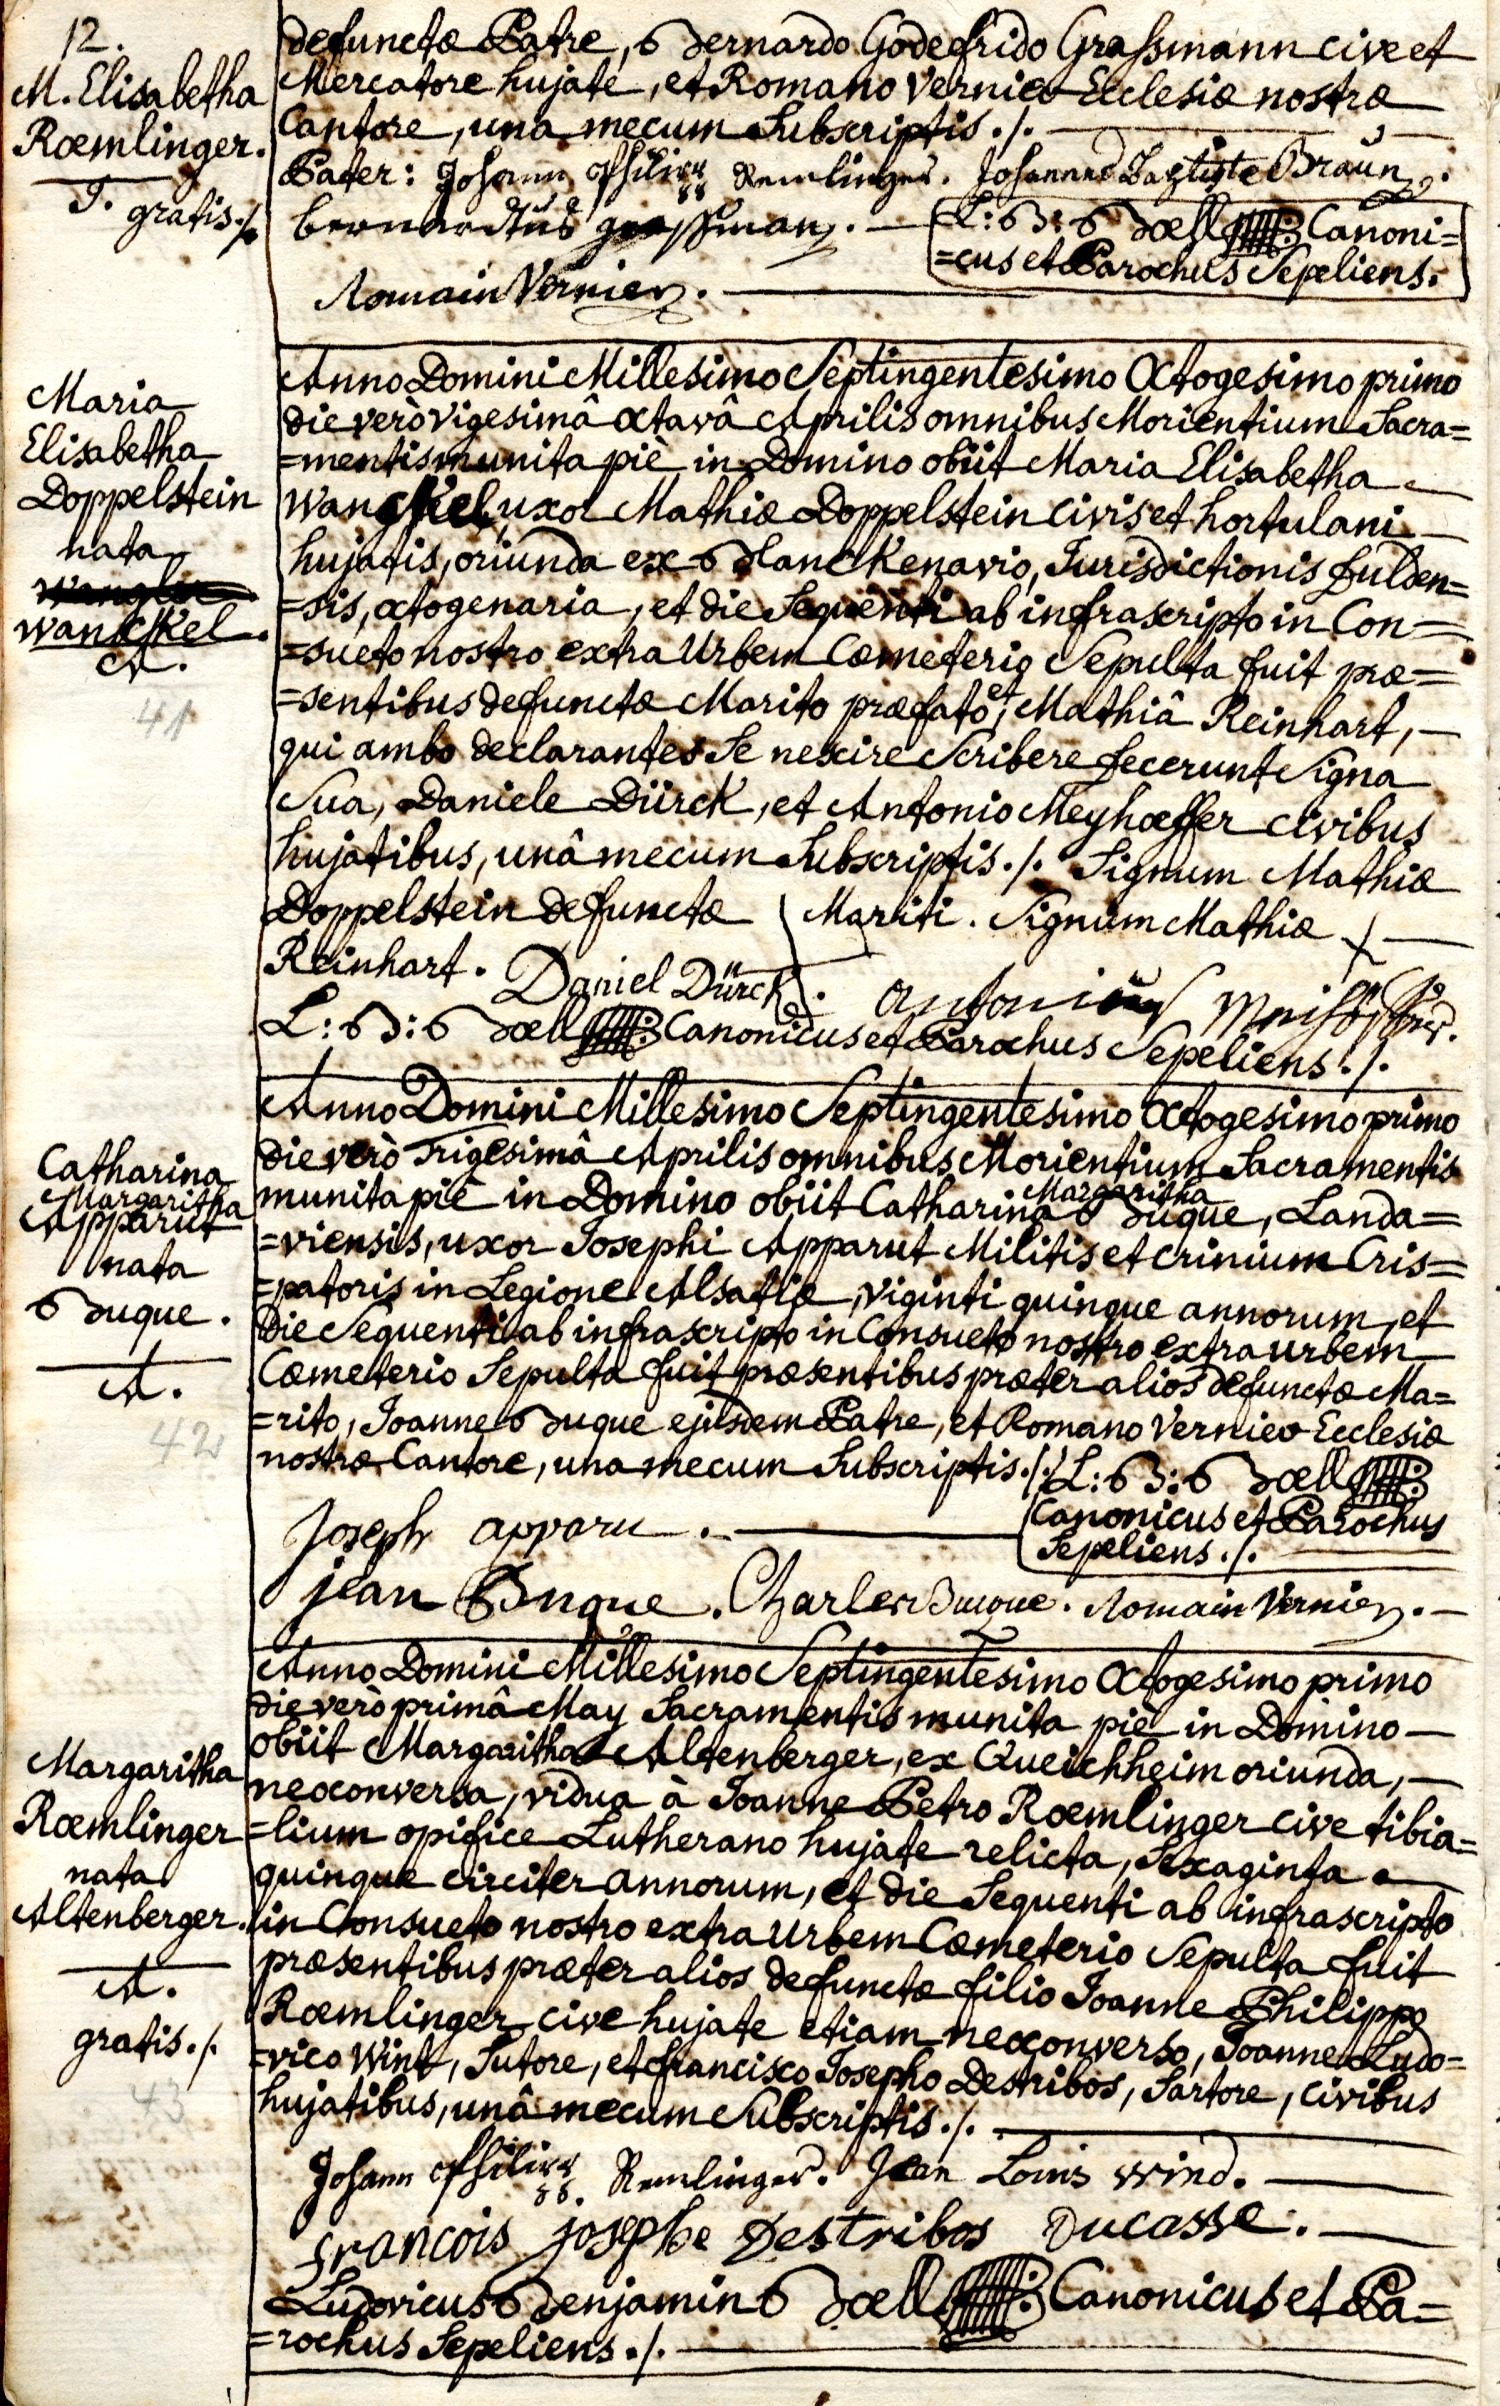 12.
M. Elisabetha
Rœmlinger.
J. gratis ./.
defunctæ Patre, Bernardo Godefrido Grassmann cive et
Mercatore hujate, et Romano Vernier Ecclesiæ nostræ
Cantore, una mecum Subscriptis ./.
Pater: Johann Philipp Remlinger. Johannes Baptiste Braun.
bernardtus grassman.
L: B: Bœll Canoni=
=cus et Parochus Sepeliens.
Romain Vernier.
Maria
Elisabetha
Doppelstein
nata
wanckel.
A.
41
Anno Domini Millesimo Septingentesimo Octogesimo primo
die verò vigesimâ octavâ Aprilis omnibus Morientium Sacra=
=mentis munita piè in Domino obiit Maria Elisabetha
Wanckel, uxor Mathiæ Doppelstein civis et hortulani
hujatis, oriunda ex Blanckenavio, Jurisdictionis fulden=
=sis, octogenaria, et die Sequenti ab infrascripto in Con=
=sueto nostro extra Urbem Cœmeterio Sepulta fuit præ=
=sentibus defunctæ Marito præfato, et Mathiâ Reinhart,
qui ambo declarantes Se nescire Scribere fecerunt Signa
Sua, Daniele Dürck, et Antonio Meyhœffer civibus
hujatibus, unâ mecum Subscriptis ./. Signum Mathiæ
Doppelstein defunctæ Mariti. Signum Mathiæ
Reinhart. Daniel Dürck. Antonius Meihöffer.
L: B: Bœll Canonicus et Parochus Sepeliens ./.
Catharina
Margaritha
Apparut
nata
Buque.
A.
42
Anno Domini Millesimo Septingentesimo Octogesimo primo
die verò Trigesimâ Aprilis omnibus Morientium Sacramentis
munita piè in Domino obiit Catharina Margaritha Buque, Landa=
=viensis, uxor Josephi Apparut Militis et crinium Cris=
=patoris in Legione Alsatiæ, viginti quinque annorum, et
die Sequenti ab infrascripto in Consueto nostro extra urbem
Cœmeterio Sepulta fuit præsentibus præter alios defunctæ Ma=
=rito, Joanne Buque ejusdem Patre, et Romano Vernier Ecclesiæ
nostræ Cantore, una mecum Subscriptis ./. L: B: Bœll
Canonicus et Parochus
Sepeliens ./.
Joseph apparu.
jean Buque. Charles Buque. Romain Vernier.
Margaritha
Rœmlinger
nata
Altenberger.
A.
gratis ./.
43
Anno Domini Millesimo Septingentesimo Octogesimo primo
die verò primâ May Sacramentis munita piè in Domino
obiit Margaritha Altenberger, ex Queichheim oriunda,
neoconversa, vidua à Joanne Petro Rœmlinger cive tibia=
=lium opifice Lutherano hujate relicta, Sexaginta
quinque circiter annorum, et die Sequenti ab infrascripto
in Consueto nostro extra Urbem Cœmeterio Sepulta fuit
præsentibus præter alios defunctæ filio Joanne Philippo
Rœmlinger cive hujate etiam neoconverso, Joanne Ludo=
=vico Wint, Sutore, et francisco Josepho Destribos, Sartore, civibus
hujatibus, unâ mecum Subscriptis ./.
Johann Philipp Remlinger. Jean Louis Wind.
francois josephe Destribos Ducasse.
Ludovicus Benjamin Bœll Canonicus et Pa=
=rochus Sepeliens ./.